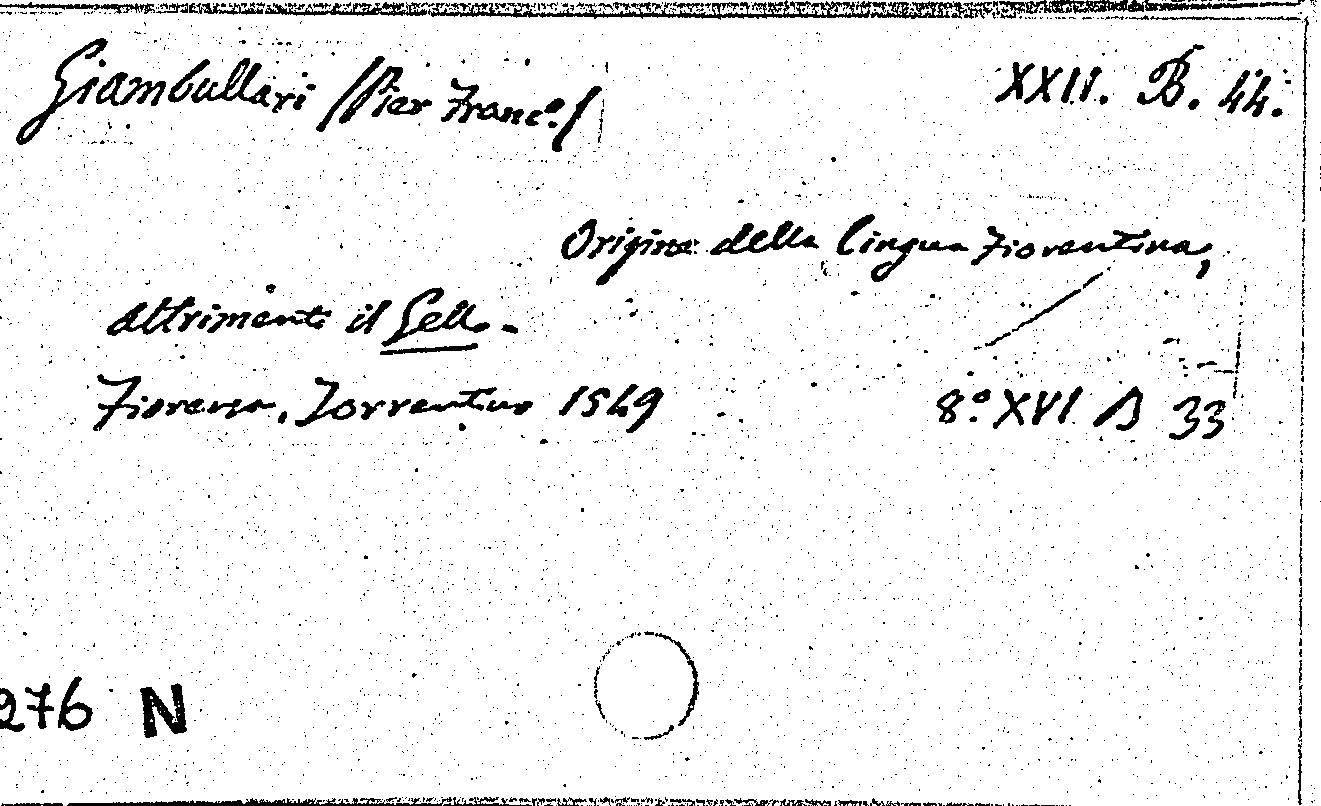 Giambullari /Pier Franc.º/ XXII. B. 44.
Origine della lingua Fiorentina,
altrimenti il Gello.
Fiorenza, Torrentino 1549 8.º XVI B 33
276 N